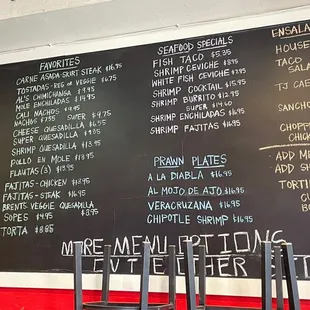 FAVORITES
CARNE ASADA SKIRT STEAK $16.95
TOSTADAS-REG OR VEGGIE $6.75
AL'S CHIMICHANGA $9.95
MOLE ENCHILADAS $14.95
CALI NACHO
NACHOS $7.95 SUPER $9.75
CHEESE QUESADILLA $6.55
SUPER QUESADILLA $9.05
SHRIMP QUESADILLA $13.95
POLLO EN MOLE $13.95
FLAUTAS (3) $13.95
FAJITAS-CHICKEN $13.95
FAJITAS-STEAK $16.95
BRENTS VEGGIE QUESADILLA
$8.95
SOPES $4.95
TORTA $8.85
SEAFOOD SPECIALS
FISH TACO $5.35
SHRIMP CEVICHE $7.95
WHITE FISH CEVICHE $7.95
SHRIMP COCKTAIL $15.95
SHRIMP BURRITO $12.95
SUPER $14.60
SHRIMP ENCHILADAS $16.95
SHRIMP FAJITAS $16.95
PRAWN PLATES
A LA DIABLA $16.95
AL MOJO DE AJO $16.95
VERACRUZANA $16.95
CHIPOTLE SHRIMP $16.95
ENSALA
HOUSE
TACO
SALA
TJ CAE
SANCHO
CHOPP
CHICK
ADD ME
ADD S
TORTI
MORE MENU OPTIONS